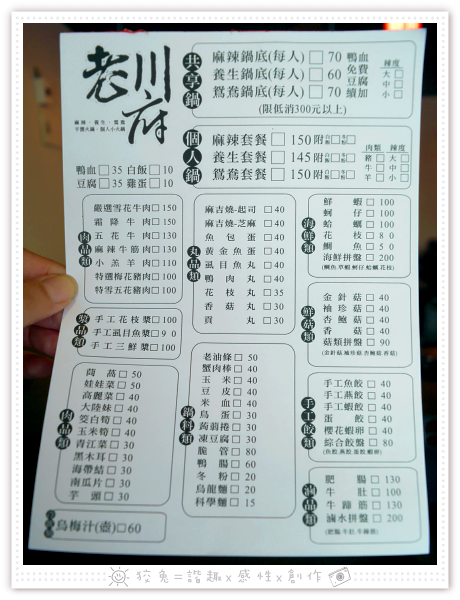 老川府
麻辣、養生、鴛鴦
平價火鍋、個人小火鍋
共享鍋
麻辣鍋底(每人)□ 70
養生鍋底(每人)□ 60
鴛鴦鍋底(每人)□ 70
(限低消300元以上)
鴨血
免費
豆腐
續加
辣度
大□
中□
小□
個人鍋
麻辣套餐 □ 150附
養生套餐 □ 145附
鴛鴦套餐 □ 150附
肉類 辣度
豬□ 大□
牛□ 中□
羊□ 小□
鴨血□35 白飯□10
豆腐□35 雞蛋□10
肉品類
嚴選雪花牛肉□150
霜降牛肉□150
五花牛肉□130
麻辣牛筋肉□130
小羔羊肉□110
特選梅花豬肉□100
特雪五花豬肉□100
漿品類
手工花枝漿□100
手工虱目魚漿□90
手工三鮮漿□100
丸品類
麻吉燒-起司 □ 40
麻吉燒-芝麻 □ 40
魚包蛋□ 40
黃金魚蛋□ 40
虱目魚丸□ 40
鴨肉丸□ 40
花枝丸□ 35
香菇丸□ 30
貢丸□ 30
海鮮類
鮮蝦□ 100
蚵仔□ 100
蛤蠣□ 100
花枝□ 80
鯛魚□ 50
海鮮拼盤□ 200
(鯛魚.草蝦.蚵仔.蛤蠣.花枝)
鮮菇類
金針菇□ 40
袖珍菇□ 40
杏鮑菇□ 40
香菇□ 40
菇類拼盤□ 90
(金針菇.袖珍菇.杏鮑菇.香菇)
肉品類
茼蒿□ 50
娃娃菜□ 50
高麗菜□ 40
大陸妹□ 40
茭白筍□ 40
玉米筍□ 40
青江菜□ 30
黑木耳□ 30
海帶結□ 30
南瓜片□ 30
芋頭□ 30
鍋料類
老油條□ 50
蟹肉棒□ 40
玉米□ 40
豆皮□ 40
米血□ 40
鳥蛋□ 30
蒟蒻捲□ 30
凍豆腐□ 30
脆管□ 80
鴨腸□ 60
冬粉□ 20
烏龍麵□ 20
科學麵□ 15
手工餃類
手工魚餃□ 40
手工燕餃□ 40
手工蝦餃□ 40
蛋餃□ 40
櫻花蝦卵□ 40
綜合餃盤□ 80
(魚餃.燕餃.蛋餃.蝦卵)
滷品類
肥腸□ 130
牛肚□ 100
牛蹄筋□ 130
滷水拼盤□ 200
(肥腸.牛肚.牛蹄筋)
烏梅汁(壺)□60
狡兔=諧趣x感性x創作